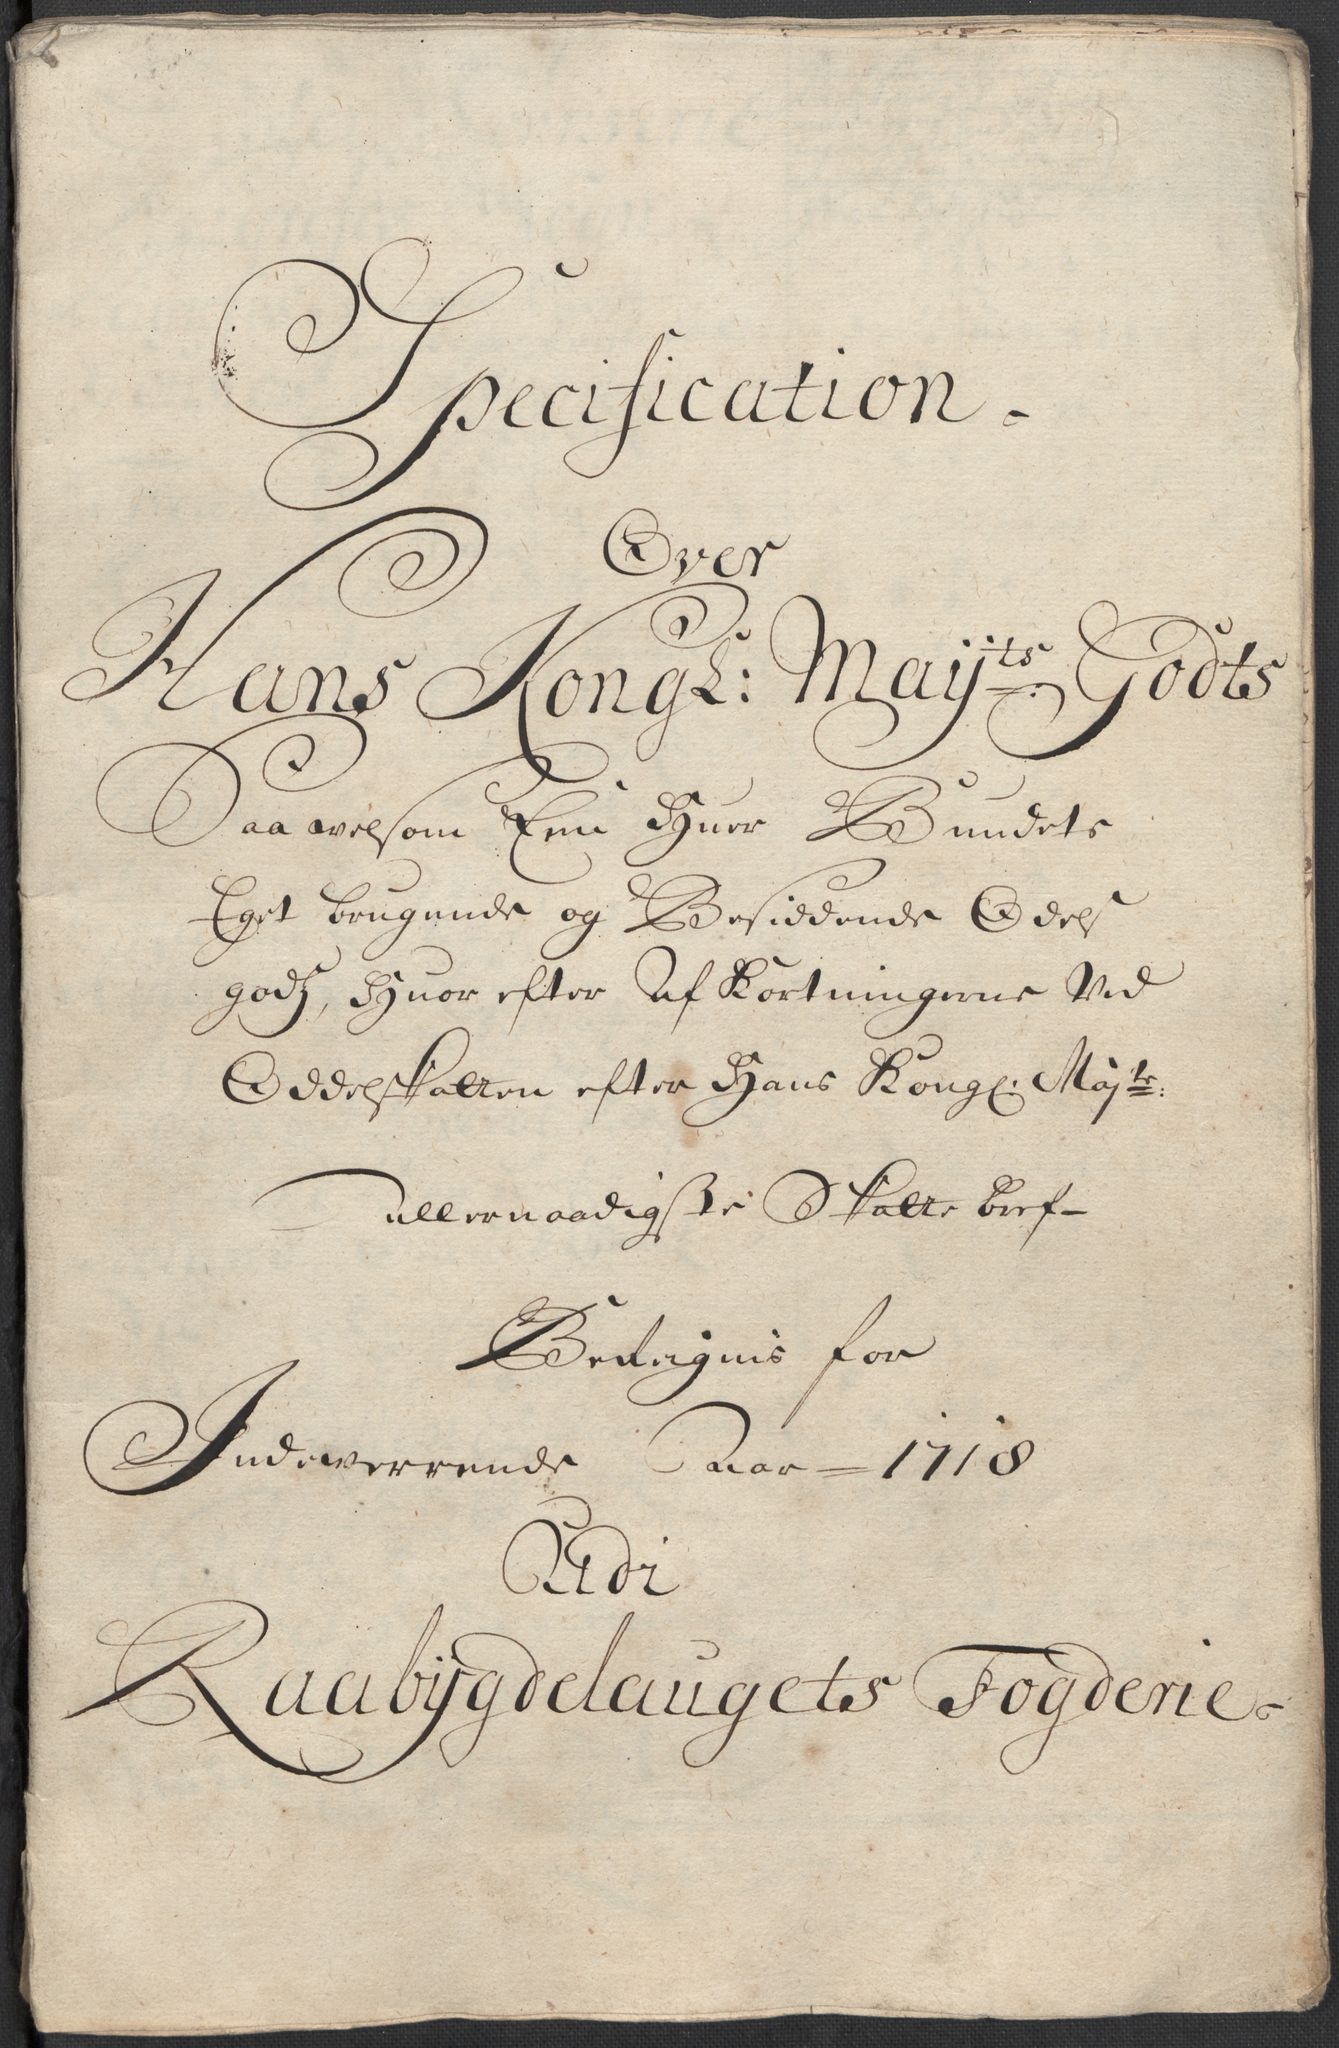 Specification.
Over
Hans Kongl: Mayts Godts
Saavelsom Een Huer Bundets
Eget brugende og Besiddende Odels
godtz, Huor efter Af Kortningerne Ved
Oddelskatten efter Hans Kongl: Mayts:
allernaadigste Skatte bref-
Befeignis for
Indeverrende Aar = 1718
Udi
Raabÿgdelaugets Fogderie.